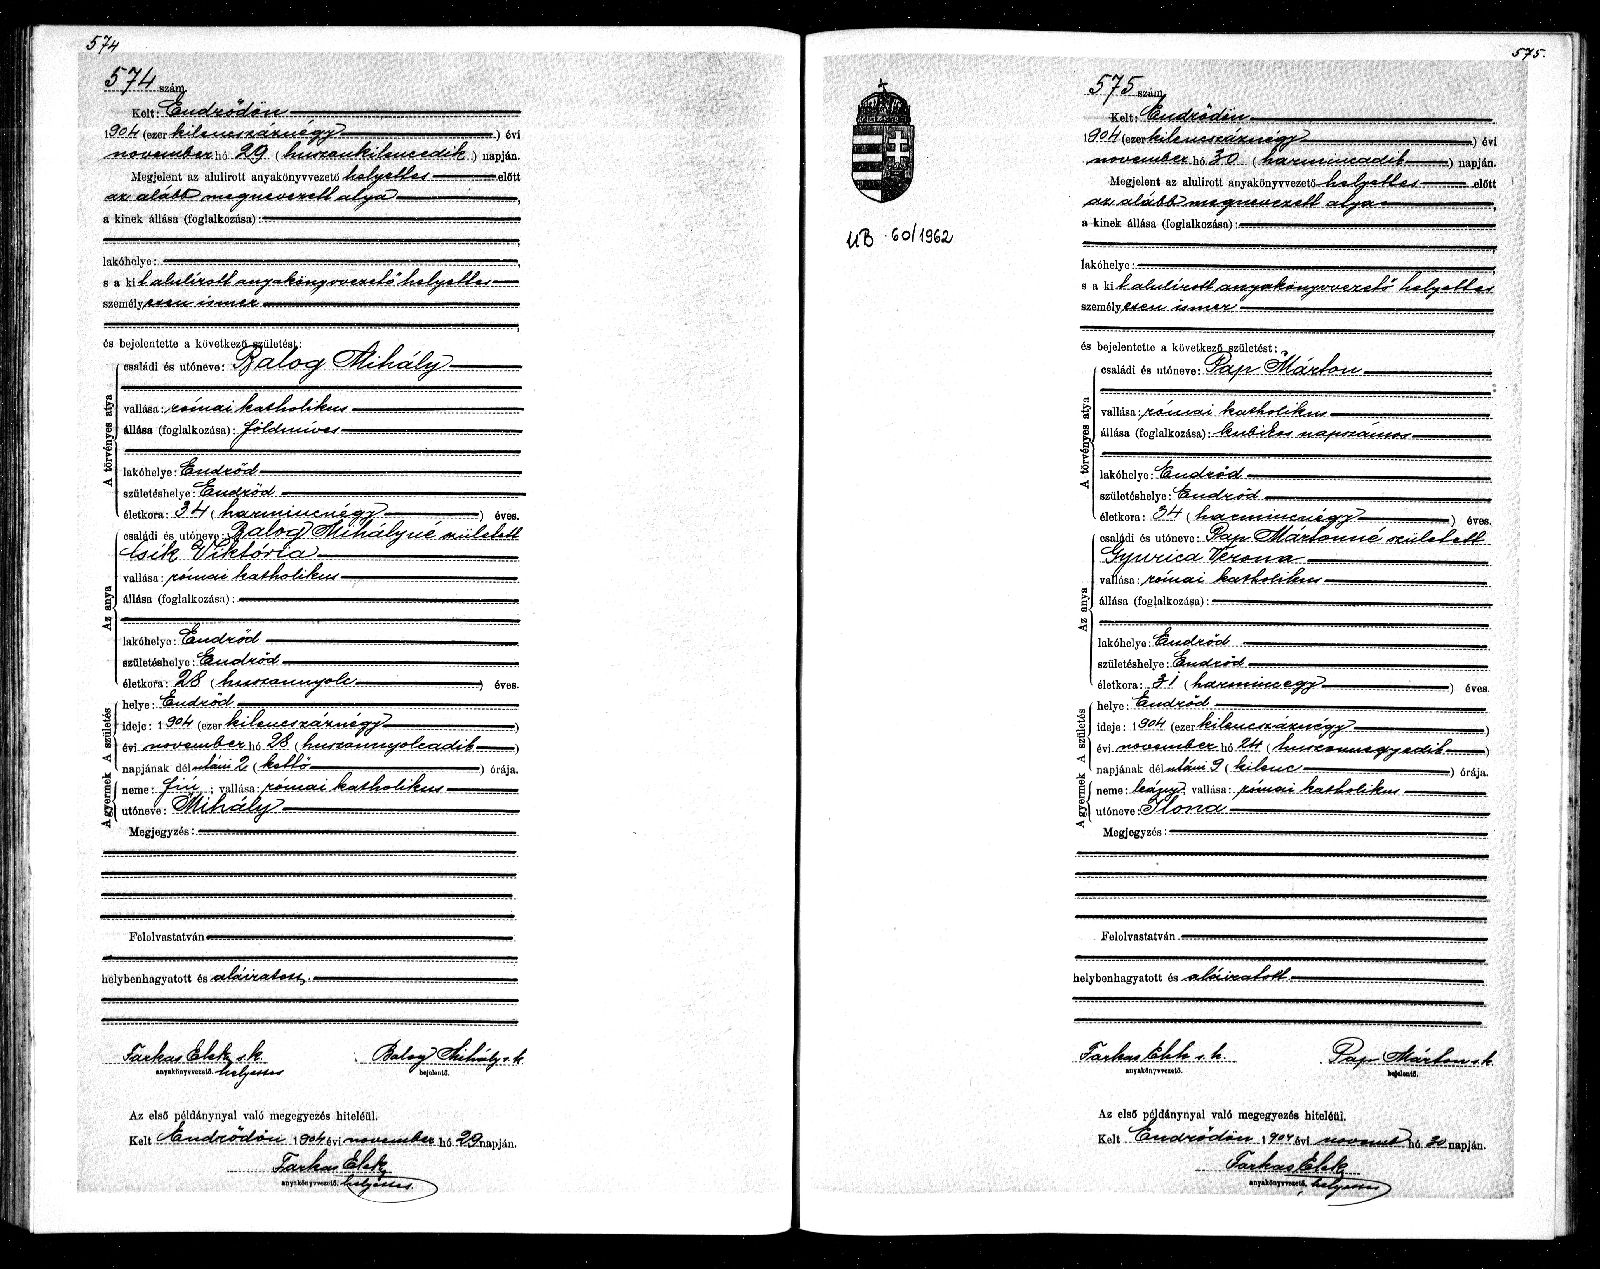 574
574 szám
Kelt: Endrődön
1904 (ezer kilencszáznégy) évi
november hó 29 (huszonkilencedik) napján.
Megjelent az alulirott anyakönyvvezető helyettes előtt
az alább megnevezett atya,
a kinek állása (foglalkozása):
lakóhelye:
s a kit alulírott anyakönyvvezető helyettes
személyesen ismer
és bejelentette a következő születést:
A törvényes atya
családi és utóneve: Balog Mihály
vallása: római katholikus
állása (foglalkozása): földmíves
lakóhelye: Endrőd
születéshelye: Endrőd
életkora: 34 (harmincnégy) éves.
Az anya
családi és utóneve: Balog Mihályné született
Csik Viktória
vallása: római katholikus
állása (foglalkozása):
lakóhelye: Endrőd
születéshelye: Endrőd
életkora: 28 (huszonnyolc) éves.
A gyermek A születés
helye: Endrőd
ideje: 1904 (ezer kilencszáznégy)
évi november hó 28 (huszonnyolcadik)
napjának dél utáni 2 (kettő) órája.
neme: fiú; vallása: római katholikus
utóneve: Mihály
Megjegyzés:
Felolvastatván
helybenhagyatott és aláiratott.
Farkas Elek s.k. Balog Mihály s.k.
anyakönyvvezető. helyettes bejelentő.
Az első példánynyal való megegyezés hiteléül.
Kelt Endrődön 1904 évi november hó 29 napján.
Farkas Elek
anyakönyvvezető. helyettes
575.
575 szám
Kelt: Endrődön
1904 (ezer kilencszáznégy) évi
november hó 30 (harmincadik) napján.
Megjelent az alulirott anyakönyvvezető helyettes előtt
az alább megnevezett atya,
a kinek állása (foglalkozása):
UB. 60/1962
lakóhelye:
s a kit alulírott anyakönyvvezető helyettes
személyesen ismer
és bejelentette a következő születést:
A törvényes atya
családi és utóneve: Pap Márton
vallása: római katholikus
állása (foglalkozása): kubikos napszámos
lakóhelye: Endrőd
születéshelye: Endrőd
életkora: 34 (harmincnégy) éves.
Az anya
családi és utóneve: Pap Mártonné született
Gyurica Verona
vallása: római katholikus
állása (foglalkozása):
lakóhelye: Endrőd
születéshelye: Endrőd
életkora: 31 (harmincegy) éves.
A gyermek A születés
helye: Endrőd
ideje: 1904 (ezer kilencszáznégy)
évi november hó 24 (huszonnegyedik)
napjának dél utáni 9 (kilenc) órája.
neme: leány; vallása: római katholikus
utóneve: Ilona
Megjegyzés:
Felolvastatván
helybenhagyatott és aláiratott
Farkas Elek s.k. Pap Márton s.k.
anyakönyvvezető. bejelentő.
Az első példánynyal való megegyezés hiteléül.
Kelt Endrődön 1904 évi novemb hó 30 napján.
Farkas Elek
anyakönyvvezető. helyettes